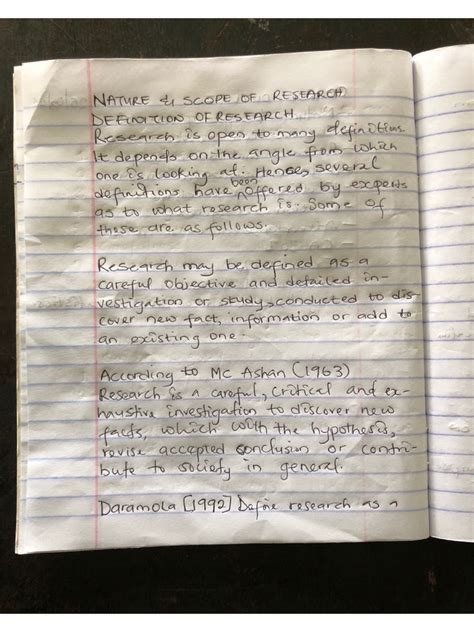 NATURE & SCOPE OF RESEARCH
DEFINITION OF RESEARCH
Research is open to many definitions.
It depends on the angle from which
one is looking at. Hence, several
definitions have been offered by experts
as to what research is. Some of
these are as follows.
Research may be defined as a
careful objective and detailed in-
vestigation or study, conducted to dis-
cover new fact, information or add to
an existing one.
According to Mc Ashan (1963)
Research is a careful, critical and ex-
haustive investigation to discover new
facts, which with the hypothesis,
revise accepted conclusion or contri-
bute to society in general.
Daramola [1992] Define research as a